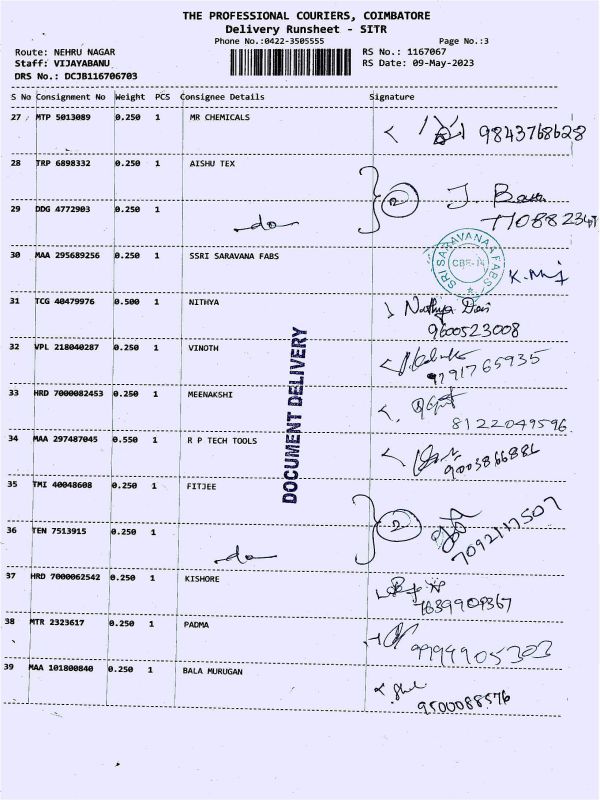 THE PROFESSIONAL COURIERS, COIMBATORE
Delivery Runsheet - SITR
Phone No.:0422-3505555 Page No.:3
Route: NEHRU NAGAR RS No.: 1167067
Staff: VIJAYABANU RS Date: 09-May-2023
DRS No.: DCJB116706703
S No Consignment No Weight PCS Consignee Details Signature
27 MTP 5013089 0.250 1 MR CHEMICALS 9843768628
28 TRP 6898332 0.250 1 AISHU TEX
29 DDG 4772903 0.250 1 do 2 J.
SRI SARAVANAA FABS CBE-14
30 MAA 295689256 0.250 1 SSRI SARAVANA FABS
31 TCG 40479976 0.500 1 NITHYA Nathya Devi
9600523008
32 VPL 218040287 0.250 1 VINOTH
9791765935
33 HRD 7000082453 0.250 1 MEENAKSHI
8122049596
34 MAA 297487045 0.550 1 R P TECH TOOLS
9003866881
DOCUMENT DELIVERY
35 TMI 40048608 0.250 1 FITJEE
36 TEN 7513915 0.250 1 do 2
7092117507
37 HRD 7000062542 0.250 1 KISHORE
7639909367
38 MTR 2323617 0.250 1 PADMA
9994905303
39 MAA 101800840 0.250 1 BALA MURUGAN
9500088576